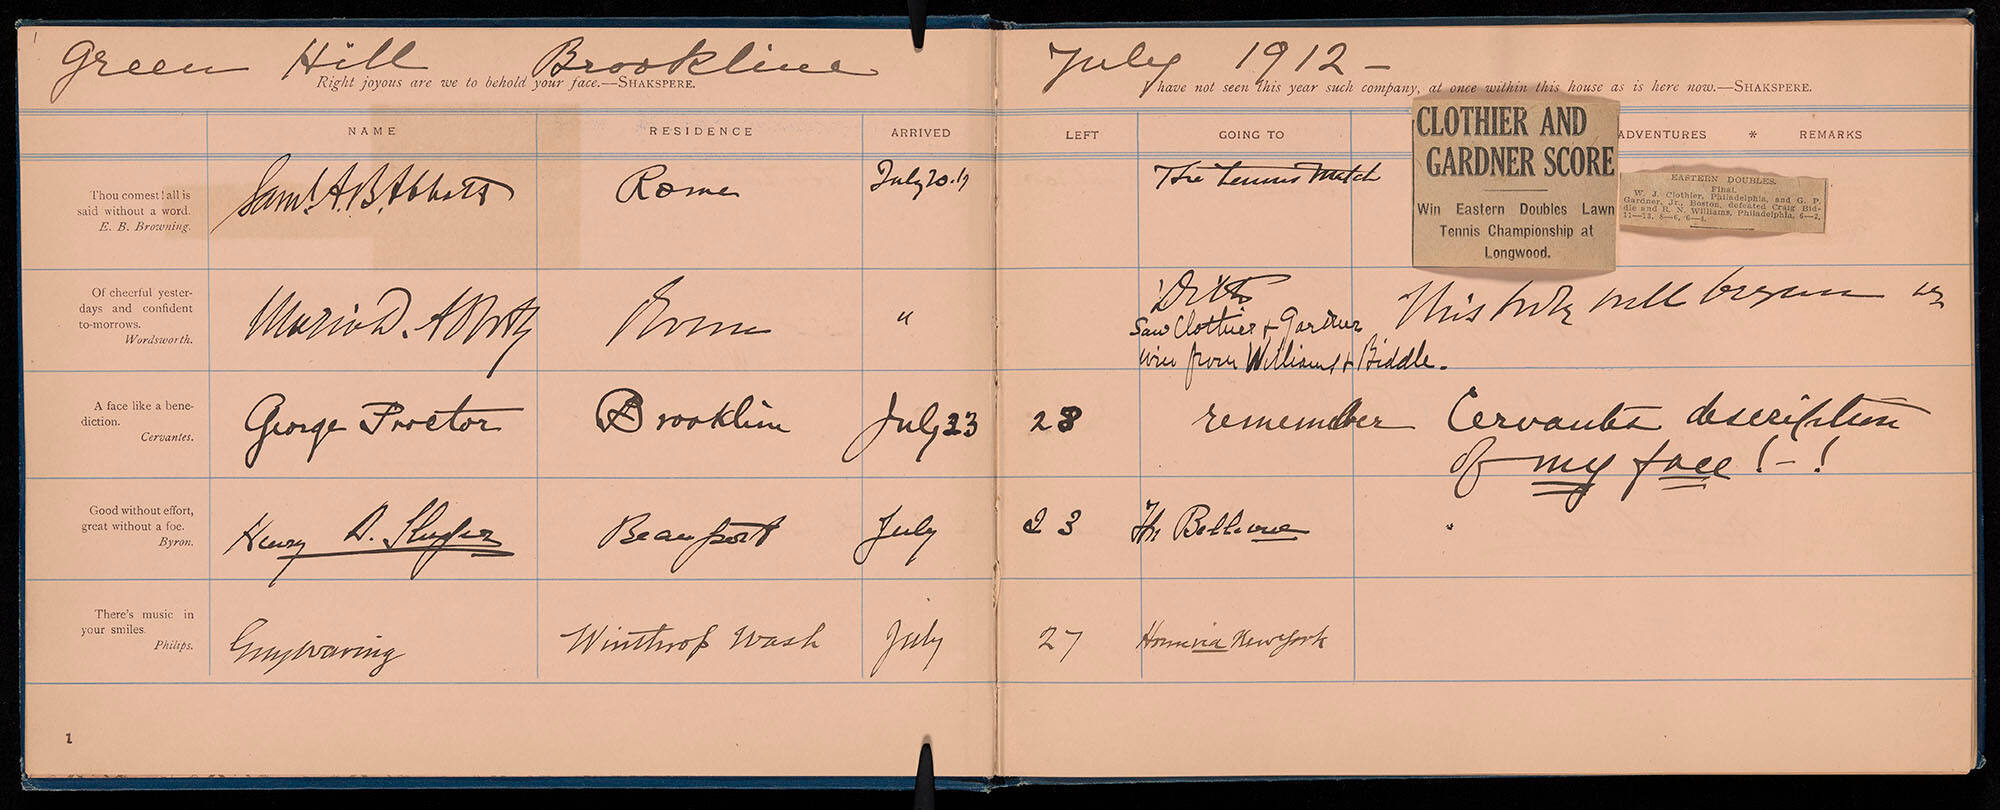 Green Hill Brookline July 1912 –
Right joyous are we to behold your face.—SHAKSPERE.
I have not seen this year such company, at once within this house as is here now.—SHAKSPERE.
NAME RESIDENCE ARRIVED LEFT GOING TO ADVENTURES * REMARKS
CLOTHIER AND
GARDNER SCORE
Win Eastern Doubles Lawn
Tennis Championship at
Longwood.
EASTERN DOUBLES.
Final.
W. J. Clothier, Philadelphia, and G. P.
Gardner, Jr., Boston, defeated Craig Bid-
dle and R. N. Williams, Philadelphia, 6—2,
11—13, 8—6, 6—4.
Thou comest! all is
said without a word.
E. B. Browning.
Saml. A. B. Abbott Rome July 20. The Tennis Match
Of cheerful yester-
days and confident
to-morrows.
Wordsworth.
Abbott Rome " Ditto
Saw Clothier & Gardner
win from Williams & Biddle.
This
A face like a bene-
diction.
Cervantes.
George Proctor Brookline July 23 28 remember Cervantes description
of my face! – !
Good without effort,
great without a foe.
Byron.
Henry D. Beaufort July 23 The Bellevue
There's music in
your smiles.
Philips.
Guy Waring Winthrop Wash July 27 Home via New York
1